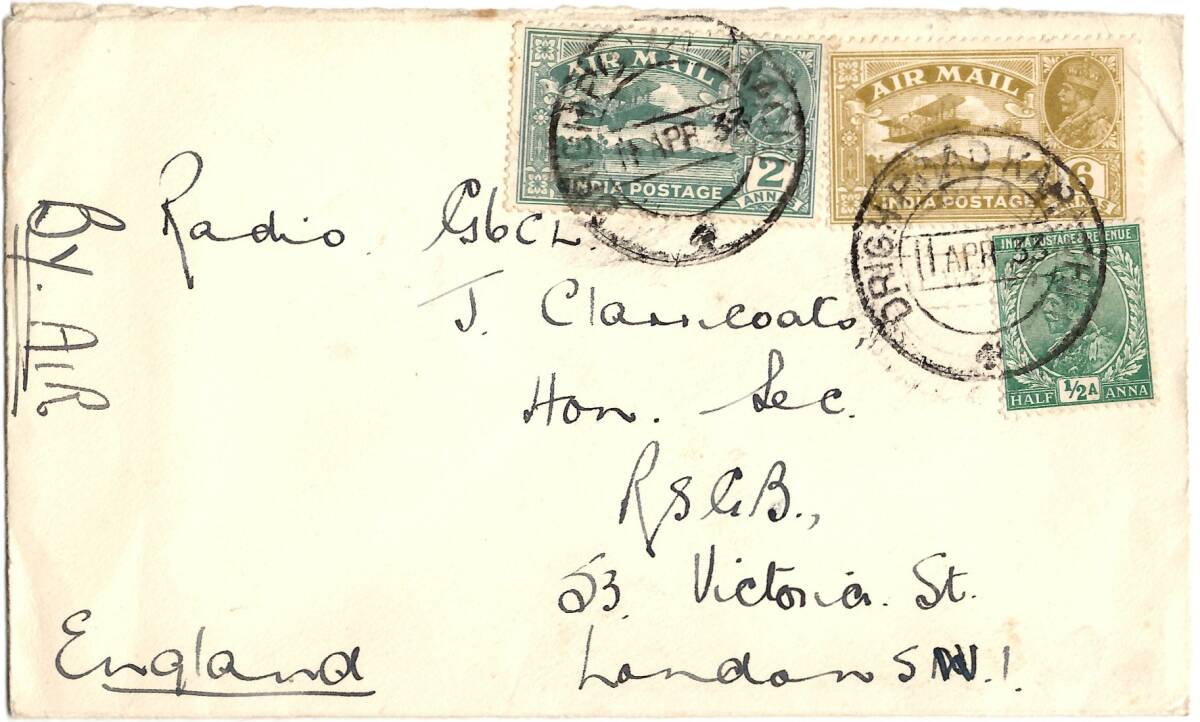 AIR MAIL
2
ANNAS
INDIA POSTAGE
11 APR 33
AIR MAIL
6
INDIA POSTAGE
DRIGH ROAD KARACHI
11 APR 33
INDIA POSTAGE & REVENUE
HALF 1/2A ANNA
BY. AIR
Radio G6CL.
J. Clarricoats,
Hon. Sec.
RSGB.,
53 Victoria. St.
London S.W.1.
England